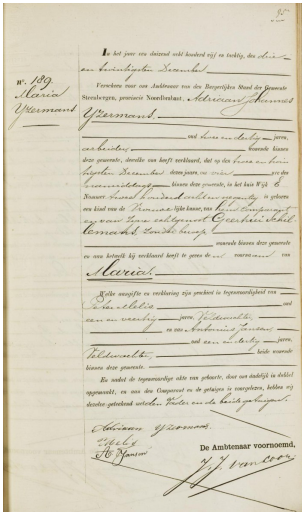 95
N°. 189.
Maria
Yzermans
In het jaar een duizend acht honderd vijf en tachtig, den drie
en twintigsten December
Verscheen voor ons Ambtenaar van den Burgerlijken Stand der Gemeente
Steenbergen, provincie Noordbrabant, Adriaan Johannes
Yzermans,
oud twee en dertig jaren,
arbeider, wonende binnen
deze gemeente, dewelke ons heeft verklaard, dat op den twee en twin
tigsten December dezes jaars, ten vier ure des
namiddags binnen deze gemeente, in het huis Wijk E
Nummer twee honderd is geboren
een kind van de Vrouwelijke kunne, van hem Comparant
en van zijne echtgenoot Geertrui Schil
lemans, zonder beroep
wonende binnen deze gemeente
en aan hetwelk hij verklaard heeft te geven de voornaam van
Maria.
Welke aangifte en verklaring zijn geschied in tegenwoordigheid van
Peter Melis oud
een en veertig jaren, Veldwachter,
en van Antonius Jansen,
oud een en dertig jaren,
Veldwachter, beide wonende
binnen deze gemeente.
En nadat de tegenwoordige akte van geboorte, door ons dadelijk in dubbel
opgemaakt, en aan den Comparant en de getuigen is voorgelezen, hebben wij
dezelve geteekend met den Vader en de beide getuigen.
Adriaan Yzermans
P Melis
A Jansen
De Ambtenaar voornoemd,
J. J. van Loon